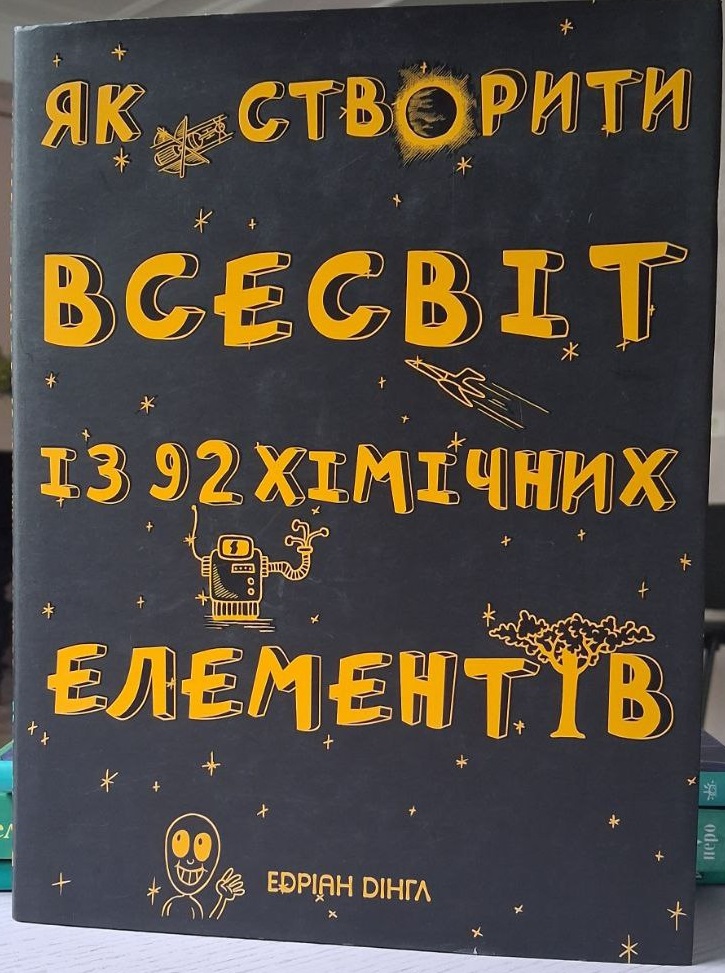 ЯК СТВОРИТИ
ВСЕСВІТ
ІЗ 92 ХІМІЧНИХ
ЕЛЕМЕНТІВ
ЕДРІАН ДІНГЛ
перо